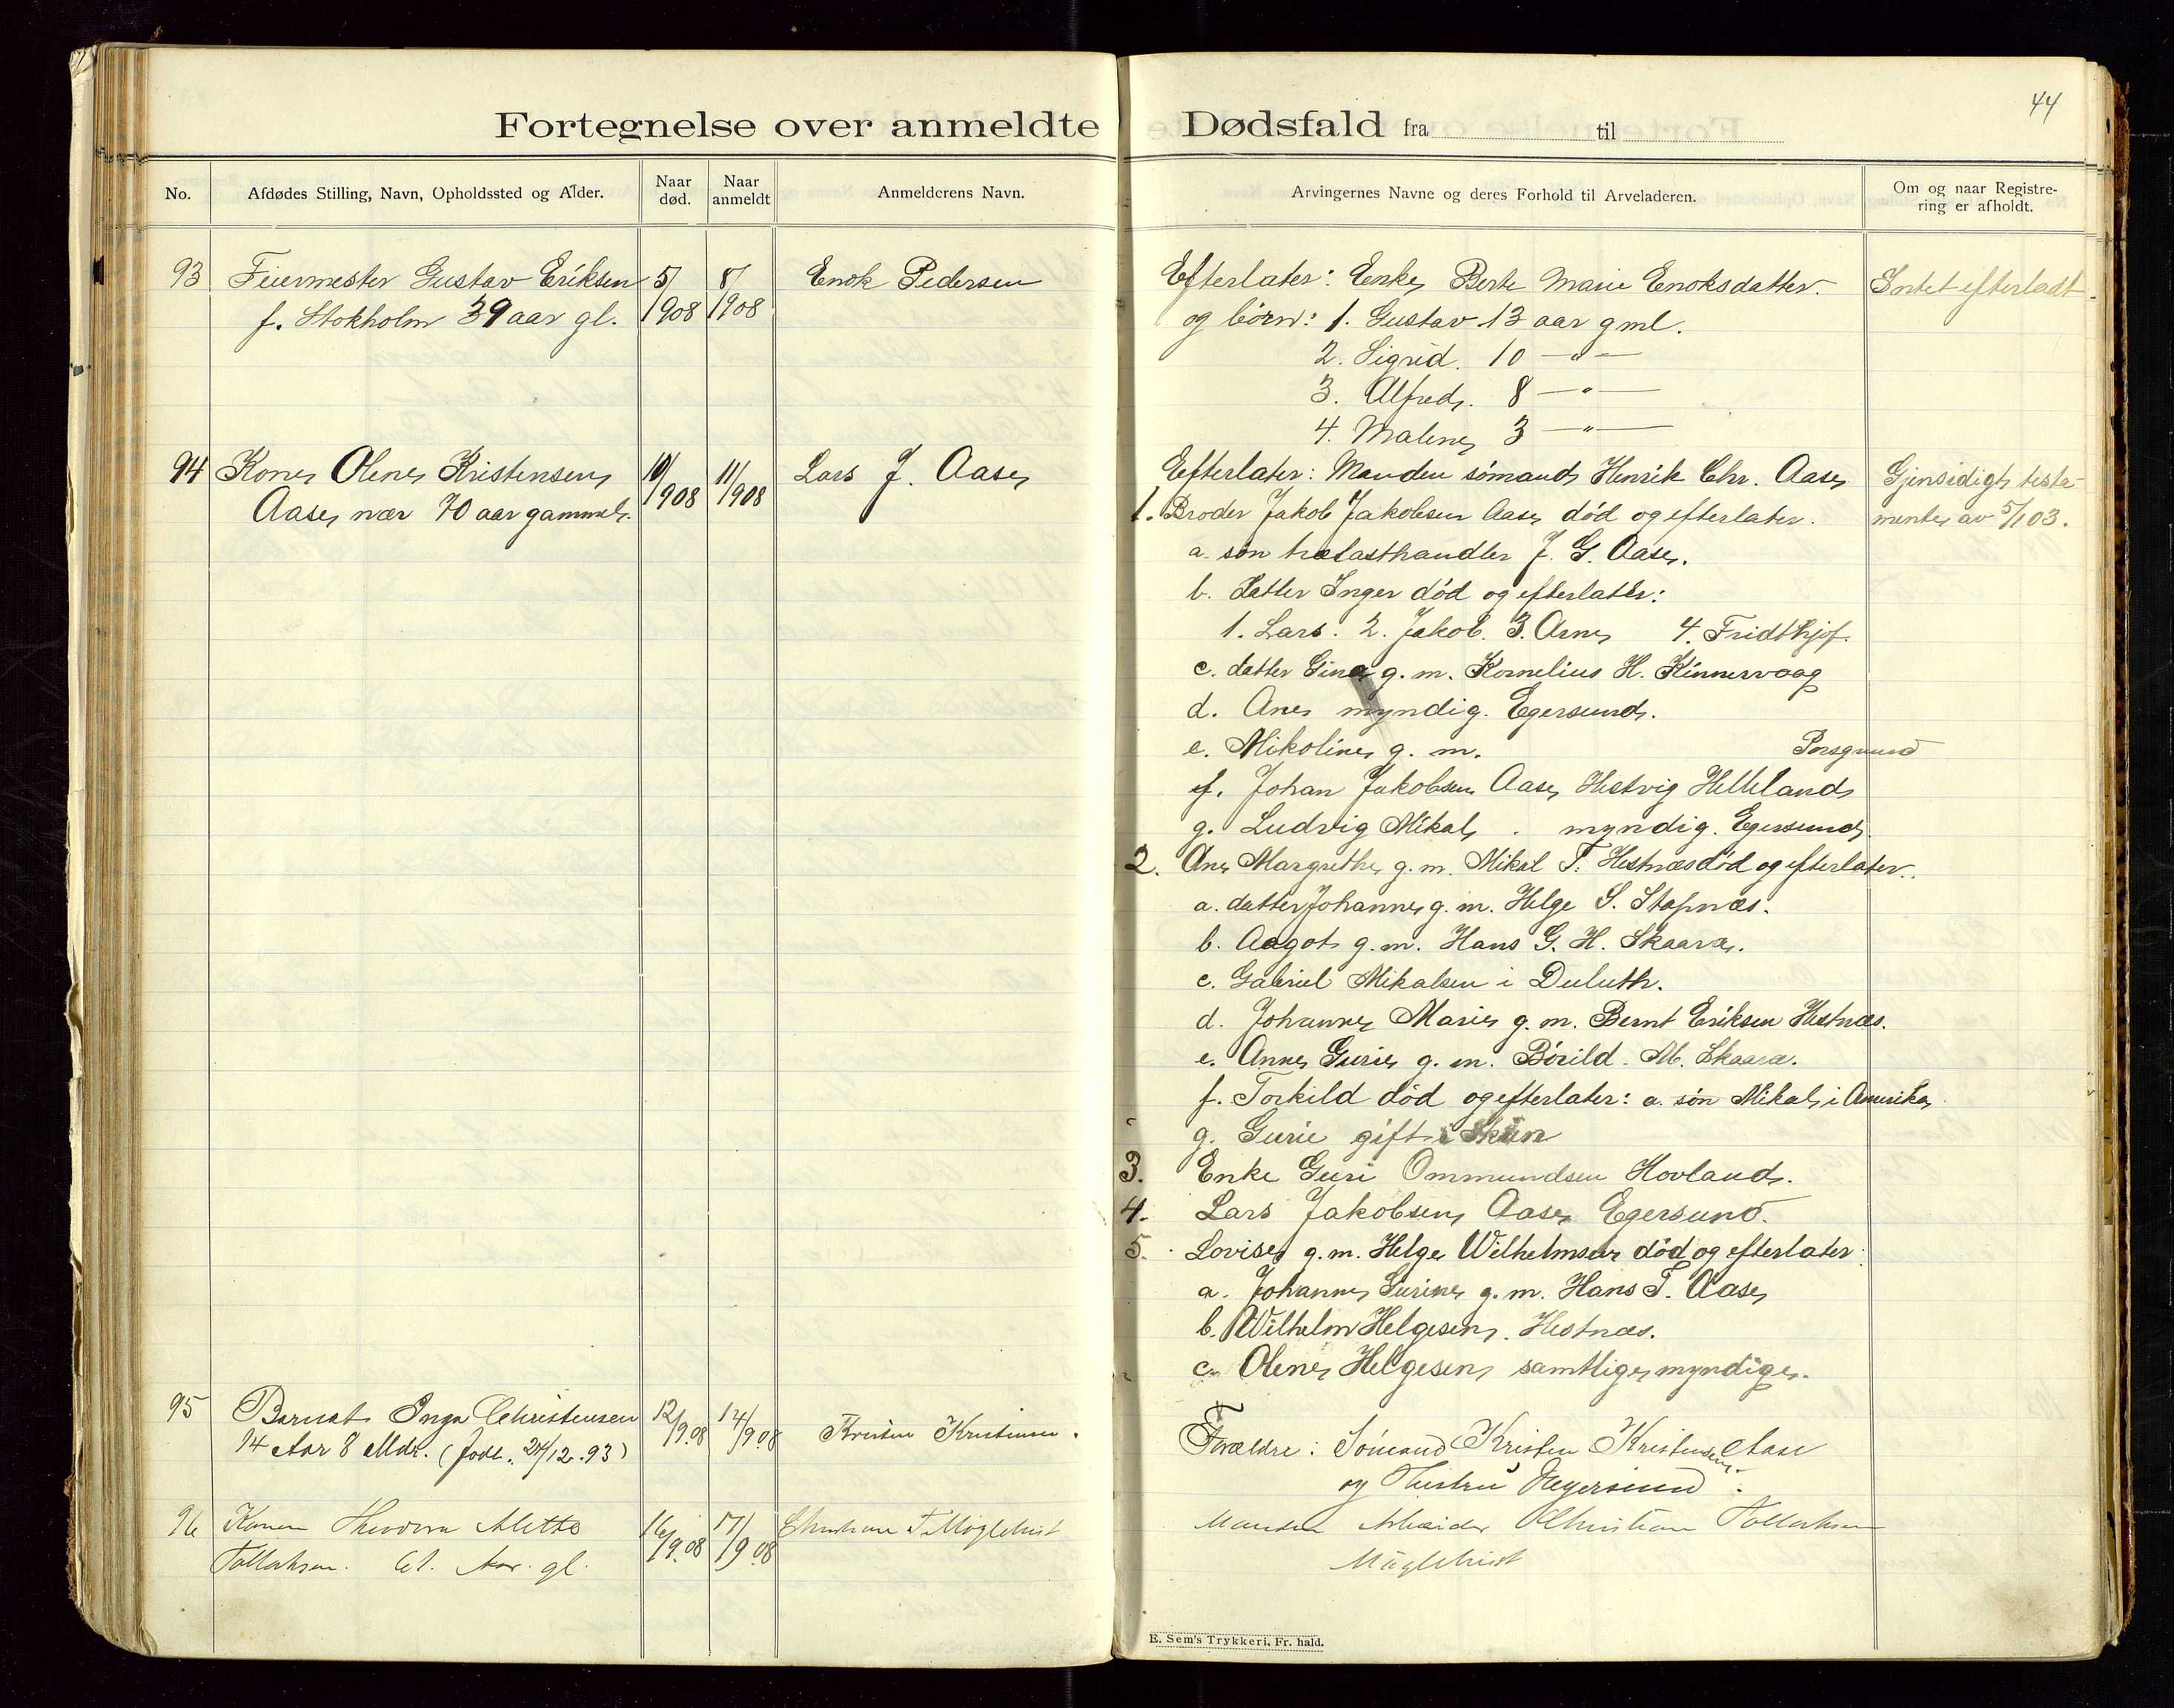 44
Fortegnelse over anmeldte Dødsfald fra til
No. Afdødes Stilling, Navn, Opholdssted og Alder. Naar død. Naar anmeldt Anmelderens Navn. Arvingernes Navne og deres Forhold til Arveladeren. Om og naar Registrering er afholdt.
93 Feiermester Gustav Eriksen 5/ 8/ Enok Pedersen Efterlater: Enke Berte Marie Enoksdatter. Intet efterladt.
f. Stokholm 39 aar gl. 1908 1908 og börn: 1. Gustav 13 aar gml.
2. Sigrid. 10 — " —
3. Alfred. 8 — " —
4. Malene 3 — " —
94 Kone Olene Kristensen 10/ 11/ Lars J. Aase Efterlater: Manden sömand Henrik Chr. Aase Gjensidigt testa-
Aase, nær 70 aar gammel. 1908 1908 1. Broder Jakob Jakobsen Aase död og efterlater. mente av 5/1 03.
a. sön trælasthandler J. G. Aase.
b. datter Inger död og efterlater:
1. Lars. 2. Jakob. 3. Arne 4. Fridthjof.
c. datter Gina g. m. Kornelius H. Kinnervaag
d. Ane myndig. Egersund.
e. Mikoline g. m. Porsgrund
f. Johan Jakobsen Aase Hestvig Helleland
g. Ludvig Mikal . myndig. Egersund.
2. Ane Margrethe g. m. Mikal T. Hestnæs död og efterlater.
a. datter Johanne g. m. Helge S. Stapnæs.
b. Aagot g. m. Hans G. H. Skaara.
c. Gabriel Mikalsen i Duluth.
d. Johanne Marie g. m. Bernt Eriksen Hestnæs.
e. Anne Gurie g. m. Börild M. Skaara.
f. Torkild död og efterlater: a. sön Mikal i Amerika
g. Gurie gift i
3. Enke Guri Ommundsen Hovland.
4. Lars Jakobsen Aase Egersund.
5. Lovise g. m. Helge Wilhelmsen död og efterlater:
a. Johanne Gurine g. m. Hans T. Aase
b. Wilhelm Helgesen. Hestnæs.
c. Olene Helgesen, samtlige myndige.
95 Barnet Inga Christensen 12/9.08 14/9.08 Kristen Kristensen. Forældre: Sömand Kristen Kristensen Aase
14 Aar 8 Mdr. (født. 24/12.93) og Hustru Egersund.
96 Konen Theodora Alette 16/9.08 17/9.08 Christian T. Møglehist Manden Arbeider Christian Tollaksen
Tollaksen. 61. Aar. gl. Møglehist
E. Sem's Trykkeri, Fr. hald.